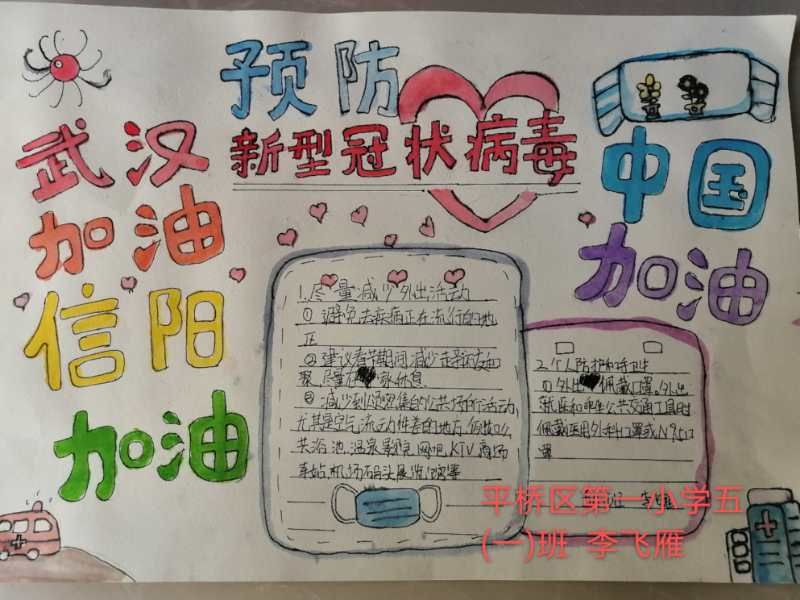 预防
新型冠状病毒
武汉
加油
信阳
加油
中国
加油
1.尽量减少外出活动
① 避免去疾病正在流行的地
区
② 建议春节期间减少走亲访友和
聚
尽量在家休息
③ 减少到人员密集的公共场所活动,
尤其是空气流动性差的地方,例如公
共浴池、温泉、影院、网吧、KTV、商场
车站、机场、码头、展览
2.个人防护和手卫生
① 外出佩戴口罩。外出
乘坐公共交通工具时
佩戴医用外科口罩或N95口
罩
平桥区第一小学五
(一)班 李飞雁